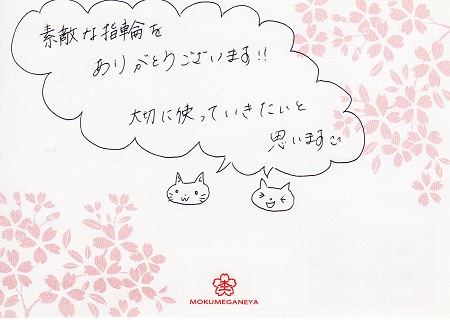 素敵な指輪を
ありがとうございます!!
大切に使っていきたいと
思います
MOKUMEGANEYA